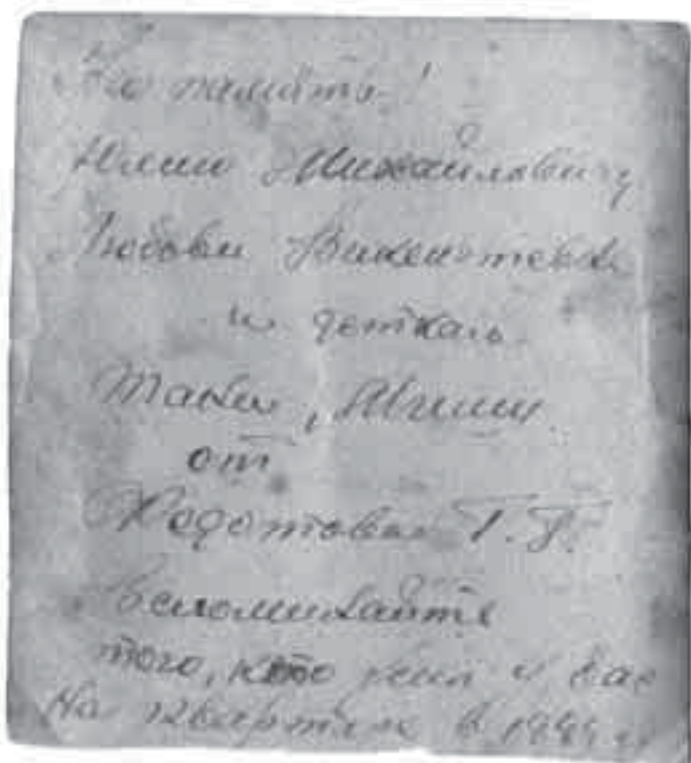 На память!
Юлию Михайловичу
Любови Викентьевне
и деткам
Тане,
от
Федотова Г.
Вспоминайте
того, кто жил у вас
на квартире в